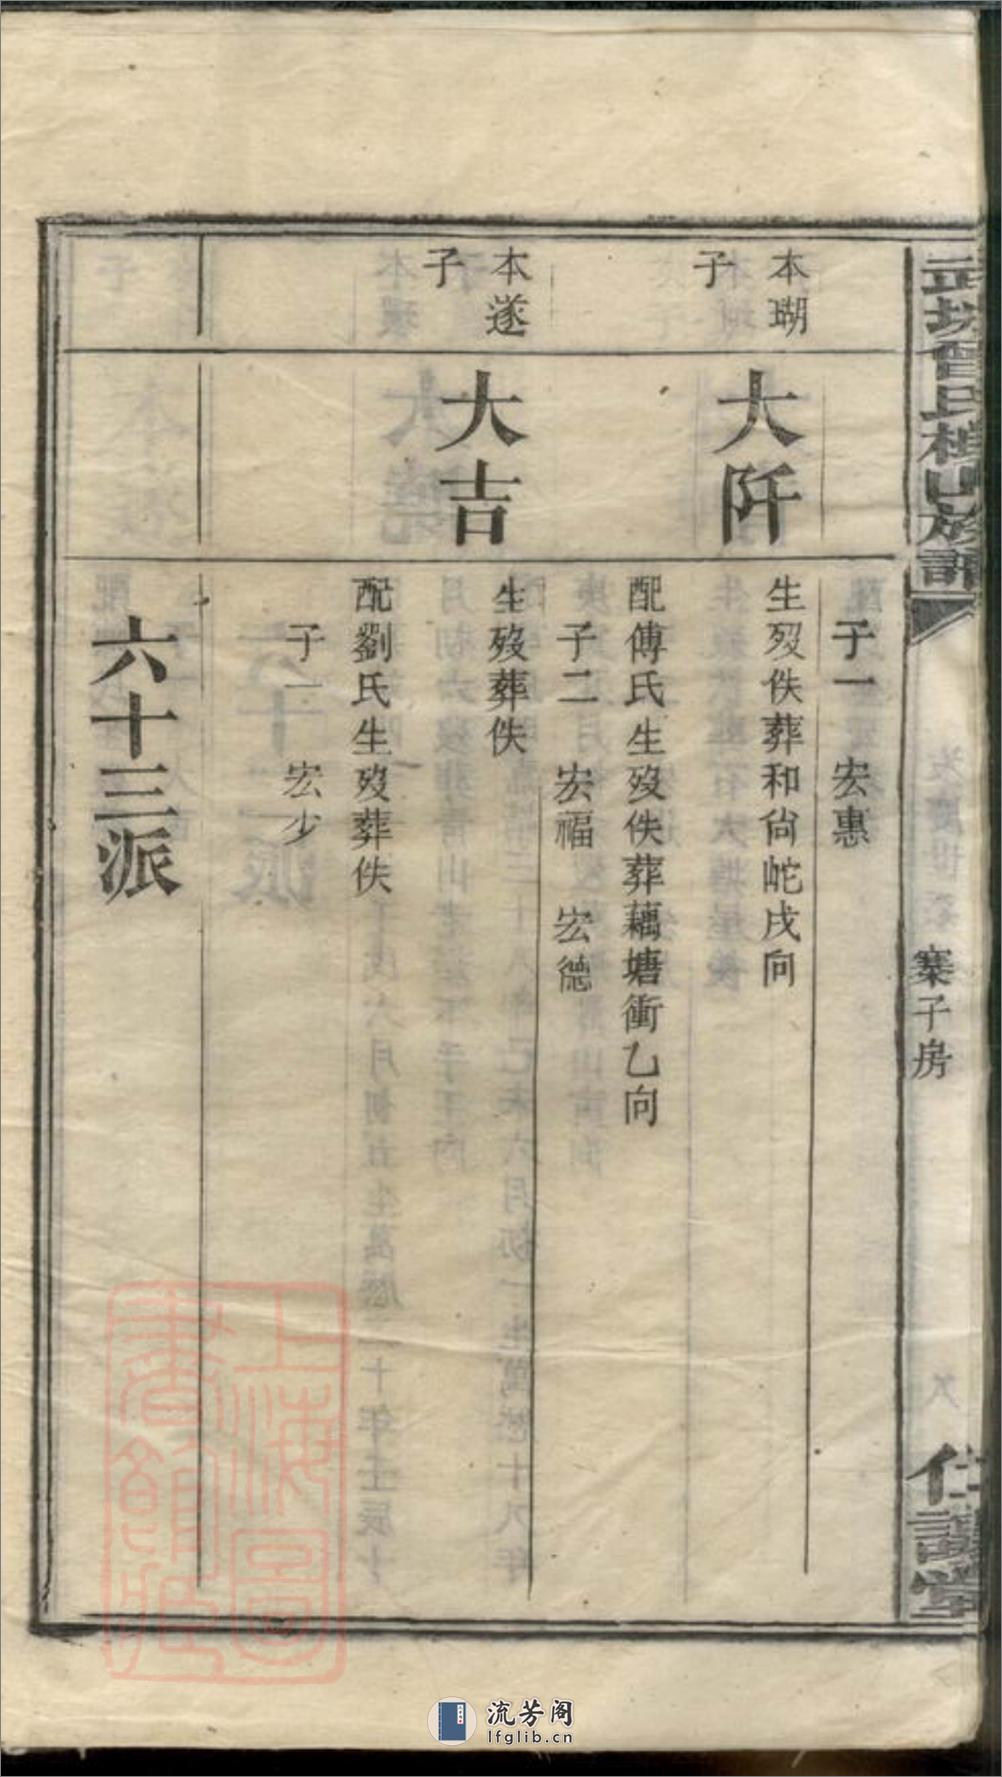 曾氏
山族譜
寨子房
堂
子一 宏惠
本瑚
子
大阡
生歿佚葬和尙蛇戌向
配傅氏生歿佚葬藕塘衝乙向
子二 宏福 宏德
本遂
子
大吉
生歿葬佚
配劉氏生歿葬佚
子一 宏少
六十三派
上海圖
書館藏
流芳阁
lfglib.cn